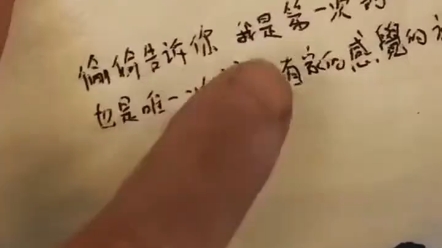 偷偷告诉你 我是第一次
也是唯一 有家的感覺的